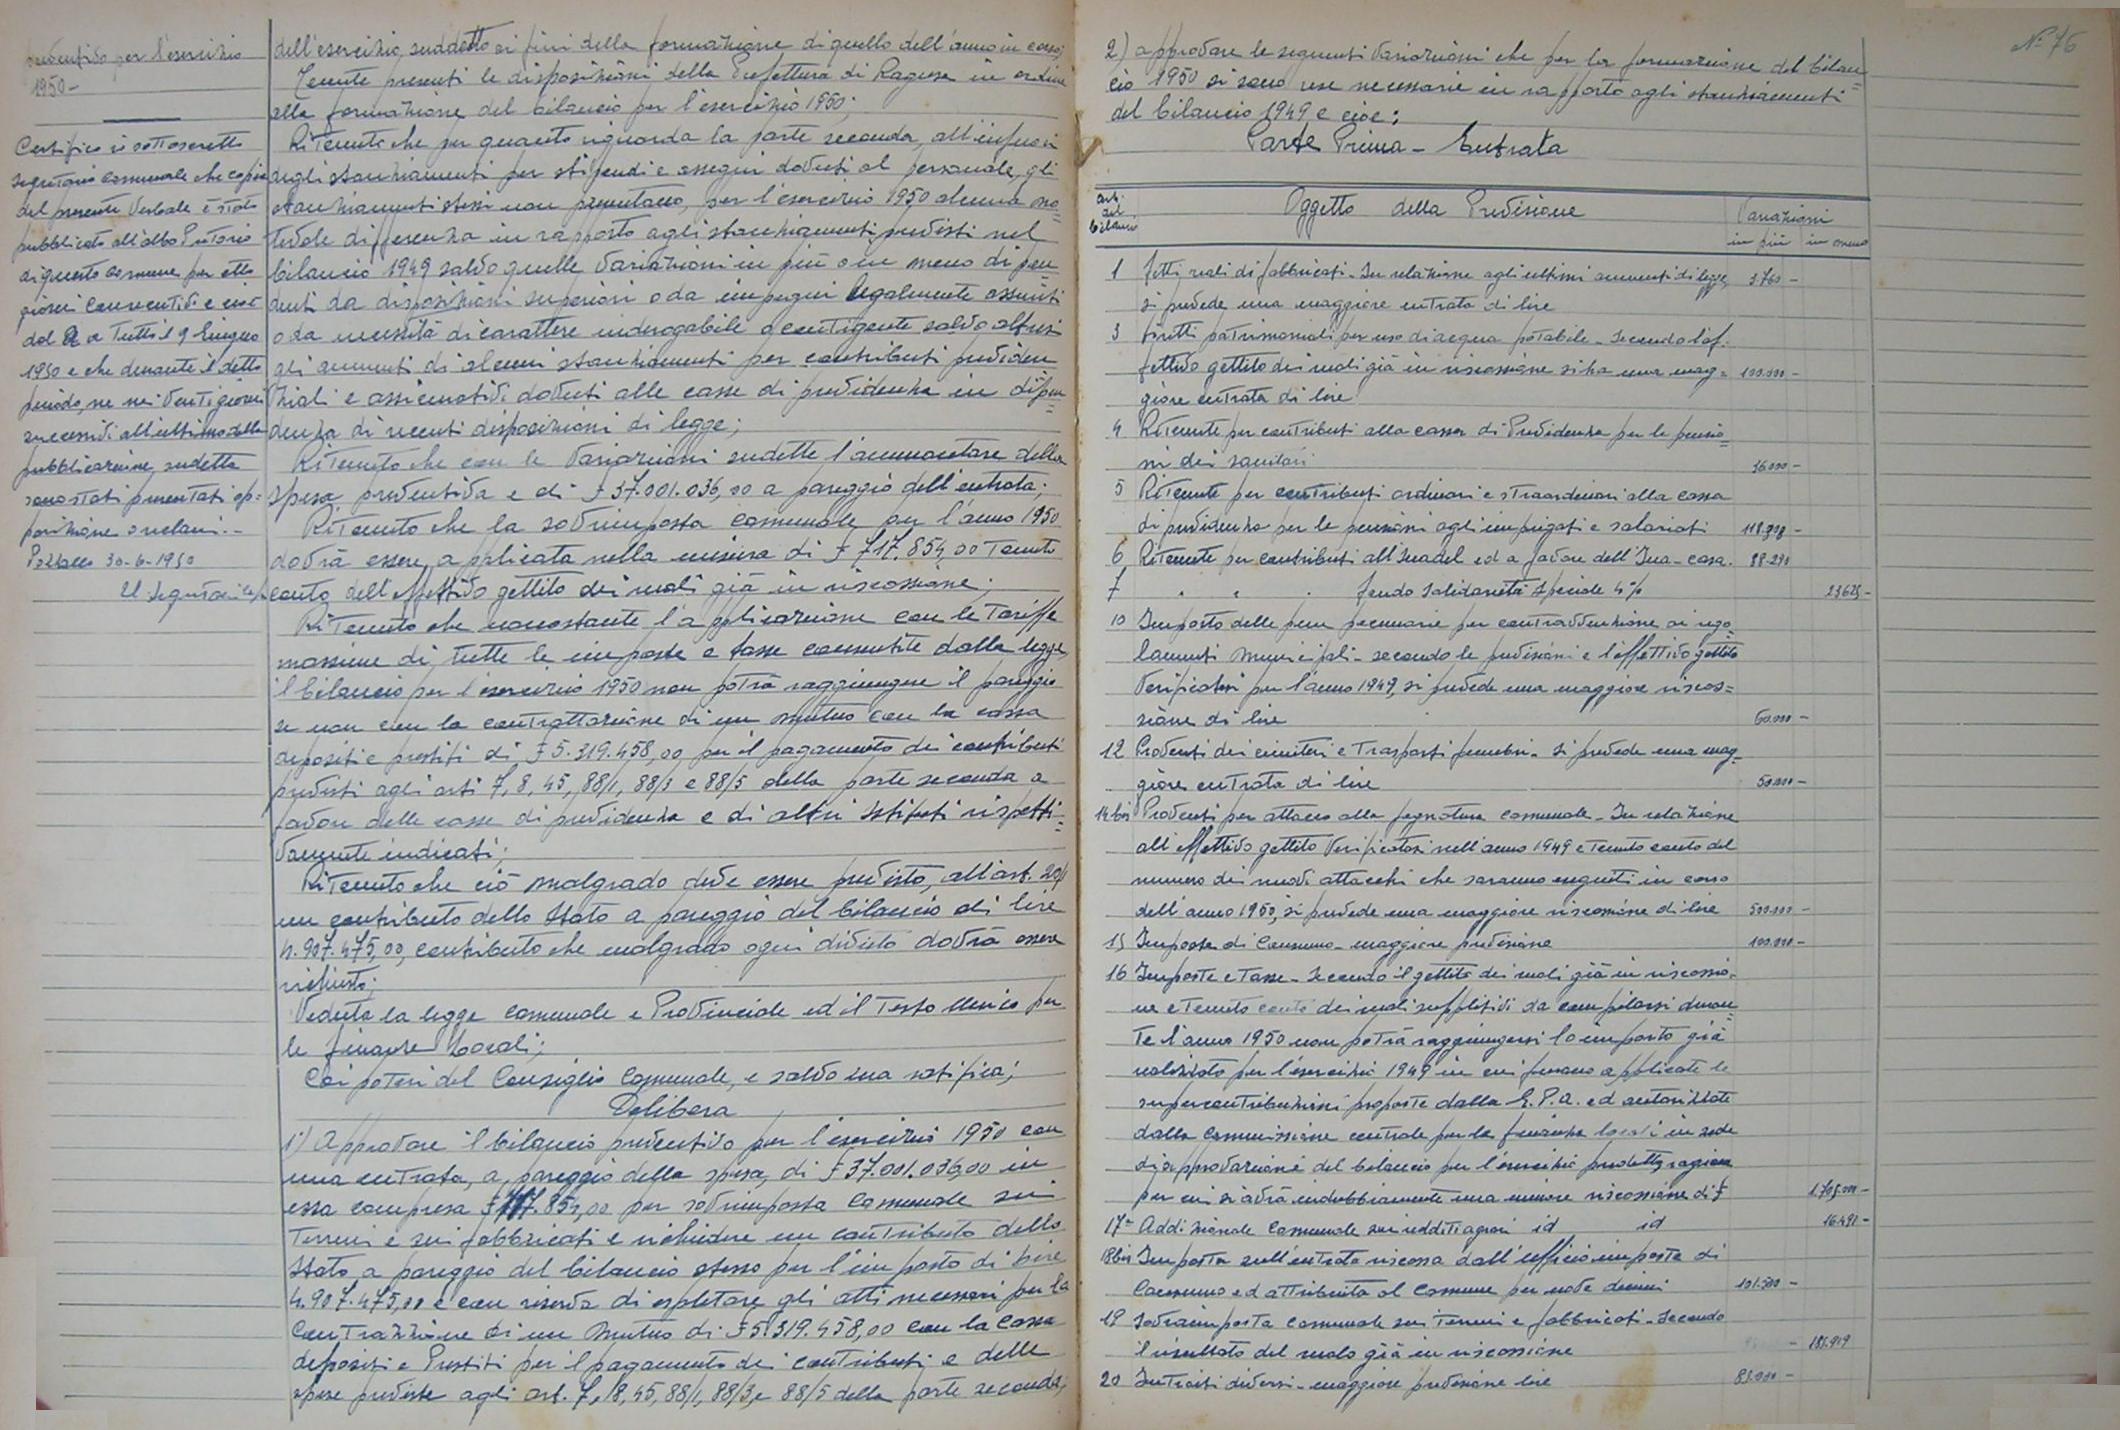 preventivo per l'esercizio
1950 -
Certifico io sottoscritto
segretario comunale che copia
del presente verbale è stato
pubblicato all'albo Pretorio
di questo comune per otto
giorni consecutivi e cioè
dal 2 a tutt'il 9 Giugno
1950 e che durante il detto
periodo, ne nei venti giorni
successivi all'ultimo della
pubblicazione sudetta
sono stati presentati op=
posizione o reclami. -
Pozzallo 30-6-1950
Il Segretario
dell'esercizio suddetto ai fini della formazione di quello dell'anno in corso;
Tenute presenti le disposizioni della Prefettura di Ragusa in ordine
alla formazione del bilancio per l'esercizio 1950;
Ritenuto che per quanto riguarda la parte seconda, all'infuori
degli stanziamenti per stipendi e assegni dovuti al personale, gli
stanziamenti stessi non presentano, per l'esercizio 1950 alcuna no=
tevole differenza in rapporto agli stanziamenti previsti nel
bilancio 1949 salvo quelle variazioni in più o in meno dipen=
denti da disposizioni superiori o da impegni legalmente assunti
o da necessità di carattere inderogabile o contigente salvo altresì
gli aumenti di alcuni stanziamenti per contributi previden
ziali e assicurativi dovuti alle casse di previdenza in dipen=
denza di recenti disposizioni di legge;
Ritenuto che con le variazioni sudette l'ammontare della
spesa preventiva e di £ 37.001.036,00 a pareggio dell'entrata;
Ritenuto che la sovrimposta comunale per l'anno 1950
dovrà essere applicata nella misura di £ 717.854,00 tenuto
conto dell'effettivo gettito dei ruoli già in riscossione;
Ritenuto che nonostante l'applicazione con le tariffe
massime di tutte le imposte e tasse consentite dalla legge,
il bilancio per l'esercizio 1950 non potrà raggiungere il pareggio
se non con la contrattazione di un mutuo con la cassa
depositi e prestiti di £ 5.319.458,00 per il pagamento dei contributi
previsti agli arti 7, 8, 45, 88/1, 88/3 e 88/5 della parte seconda a
favore delle casse di previdenza e di altri Istituti rispetti=
vamente indicati;
Ritenuto che ciò malgrado deve essere previsto, all'art. 20/1
un contributo dello Stato a pareggio del bilancio di lire
4.907.475,00, contributo che malgrado ogni divieto dovrà essere
richiesto;
Veduta la legge comunale e Provinciale ed il Testo Unico per
le finanze locali;
Coi poteri del Consiglio Comunale, e salvo sua ratifica;
Delibera
1°) Approvare il bilancio preventivo per l'esercizio 1950 con
una entrata, a pareggio della spesa, di £ 37.001.036,00 in
essa compresa £ 717.854,00 per sovrimposta comunale sui
terreni e sui fabbricati e richiedere un contributo dello
Stato a pareggio del bilancio stesso per l'importo di lire
4.907.475,00 e con riserva di espletare gli atti necessari per la
contrazzione di un mutuo di £ 5.319.458,00 con la Cassa
depositi e Prestiti per il pagamento dei contributi e delle
spese previste agli art. 7, 8, 45, 88/1, 88/3, e 88/5 della parte seconda;
N° 76
2) approvare le seguenti variazioni che per la formazione del bilan=
cio 1950 si sono rese necessarie in rapporto agli stanziamenti
del bilancio 1949 e cioè:
Parte Prima - Entrata
arti. del bilancio Oggetto della Previsione Variazioni
in più in meno
1 Fitti reali di fabbricati - In relazione agli ultimi aumenti di legge 3.760 -
si prevede una maggiore entrata di lire
3 Diritti patrimoniali per uso di acqua potabile - Secondo l'ef-
fettivo gettito dei ruoli già in riscossione si ha una mag= 100.000 -
giore entrata di lire
4 Ritenute per contributi alla cassa di Previdenza per le pensio=
ni dei sanitari 16.000 -
5 Ritenute per contributi ordinari e straordinari alla cassa
di previdenza per le pensioni agli impiegati e salariati -
6 Ritenute per contributi all'Inadel ed a favore dell'Ina-casa. 88.290
7 " " " fondo solidarietà speciale 4% 23625 -
10 Importo delle pene pecuniarie per contravvenzione ai rego
lamenti municipali - secondo le previsioni e l'effettivo gettito
verificatosi per l'anno 1949, si prevede una maggiore riscos=
sione di lire 60.000 -
12 Proventi dei cimiteri e trasporti funebri - si prevede una mag=
giore entrata di lire 50.000 -
14 bis Proventi per attacco alla fognatura comunale - In relazione
all'effettivo gettito verificatosi nell'anno 1949 e tenuto conto del
numero dei nuovi attacchi che saranno eseguiti in corso
dell'anno 1950, si prevede una maggiore riscossione di lire 500.000 -
15 Imposta di Consumo - maggiore previsione 100.000 -
16 Imposte e tasse - Secondo il gettito dei ruoli già in riscossio-
ne e tenuto conto dei ruoli suppletivi da compilarsi duran=
te l'anno 1950 non potrà raggiungersi lo importo già
realizzato per l'esercizio 1949 in cui furono applicate le
supercontribuzioni proposte dalla G.P.A. ed autorizzate
dalla Commissione centrale per la finanza locali in sede
di approvazione del bilancio per l'esercizio predetto, ragione
per cui si avrà indubbiamente una minore riscossione di £ 1.705.000 -
17 Addizionale Comunale sui redditi agrari id id 16.491 -
18 bis Imposta sull'entrata riscossa dall'ufficio imposte di
Consumo ed attribuita al Comune per nove decimi 101.500 -
19 Sovraimposta comunale sui terreni e fabbricati - Secondo
l'risultato del ruolo già in riscossione - 181.919
20 Introiti diversi - maggiore previsione lire 83.000 -